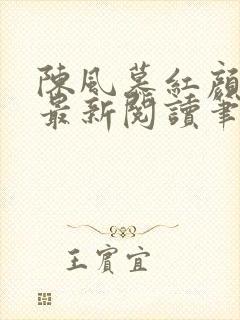 陳風慕紅顏
最新閱讀筆
王賓宜